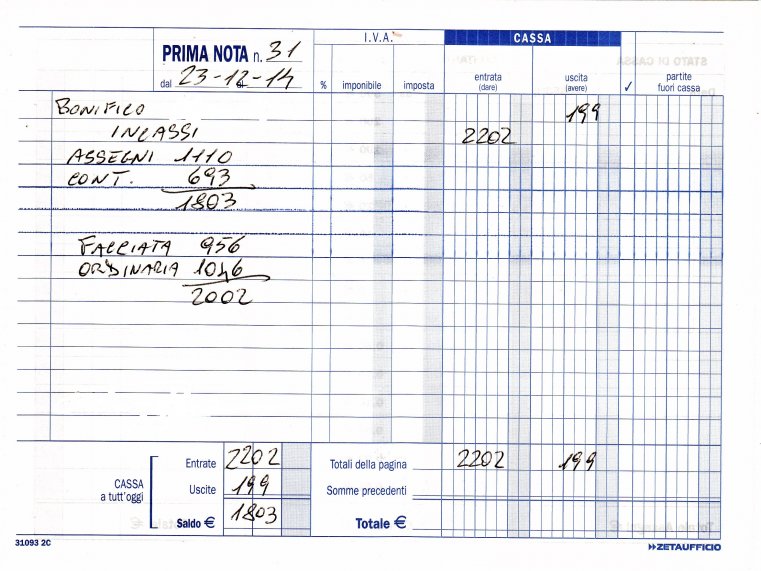 I.V.A. CASSA
PRIMA NOTA n. 31
dal 23-12-14
% imponibile imposta entrata (dare) uscita (avere) ✓ partite fuori cassa
BONIFICO 199
INCASSI 2202
ASSEGNI 1110
CONT. 693
1803
FACCIATA 956
ORDINARIA 1046
2002
CASSA a tutt'oggi
Entrate 2202 Totali della pagina 2202 199
Uscite 199 Somme precedenti
Saldo € 1803 Totale €
31093 2C ZETAUFFICIO